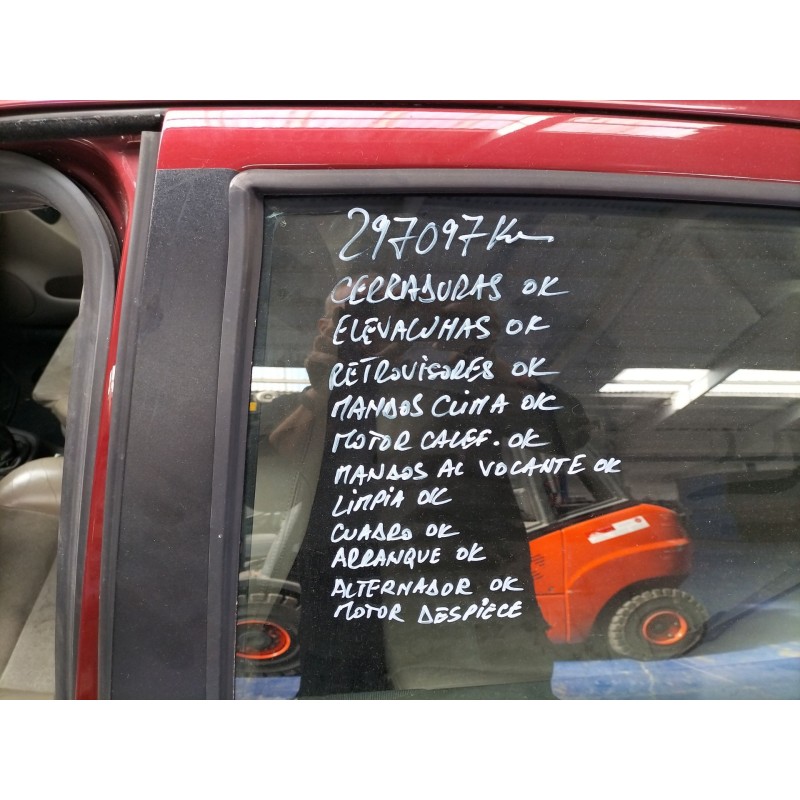 297097 Km
CERRADURAS OK
ELEVALUNAS OK
RETROVISORES OK
MANDOS CLIMA OK
MOTOR CALEF. OK
MANDOS AL VOLANTE OK
LIMPIA OK
CUADRO OK
ARRANQUE OK
ALTERNADOR OK
MOTOR DESPIECE